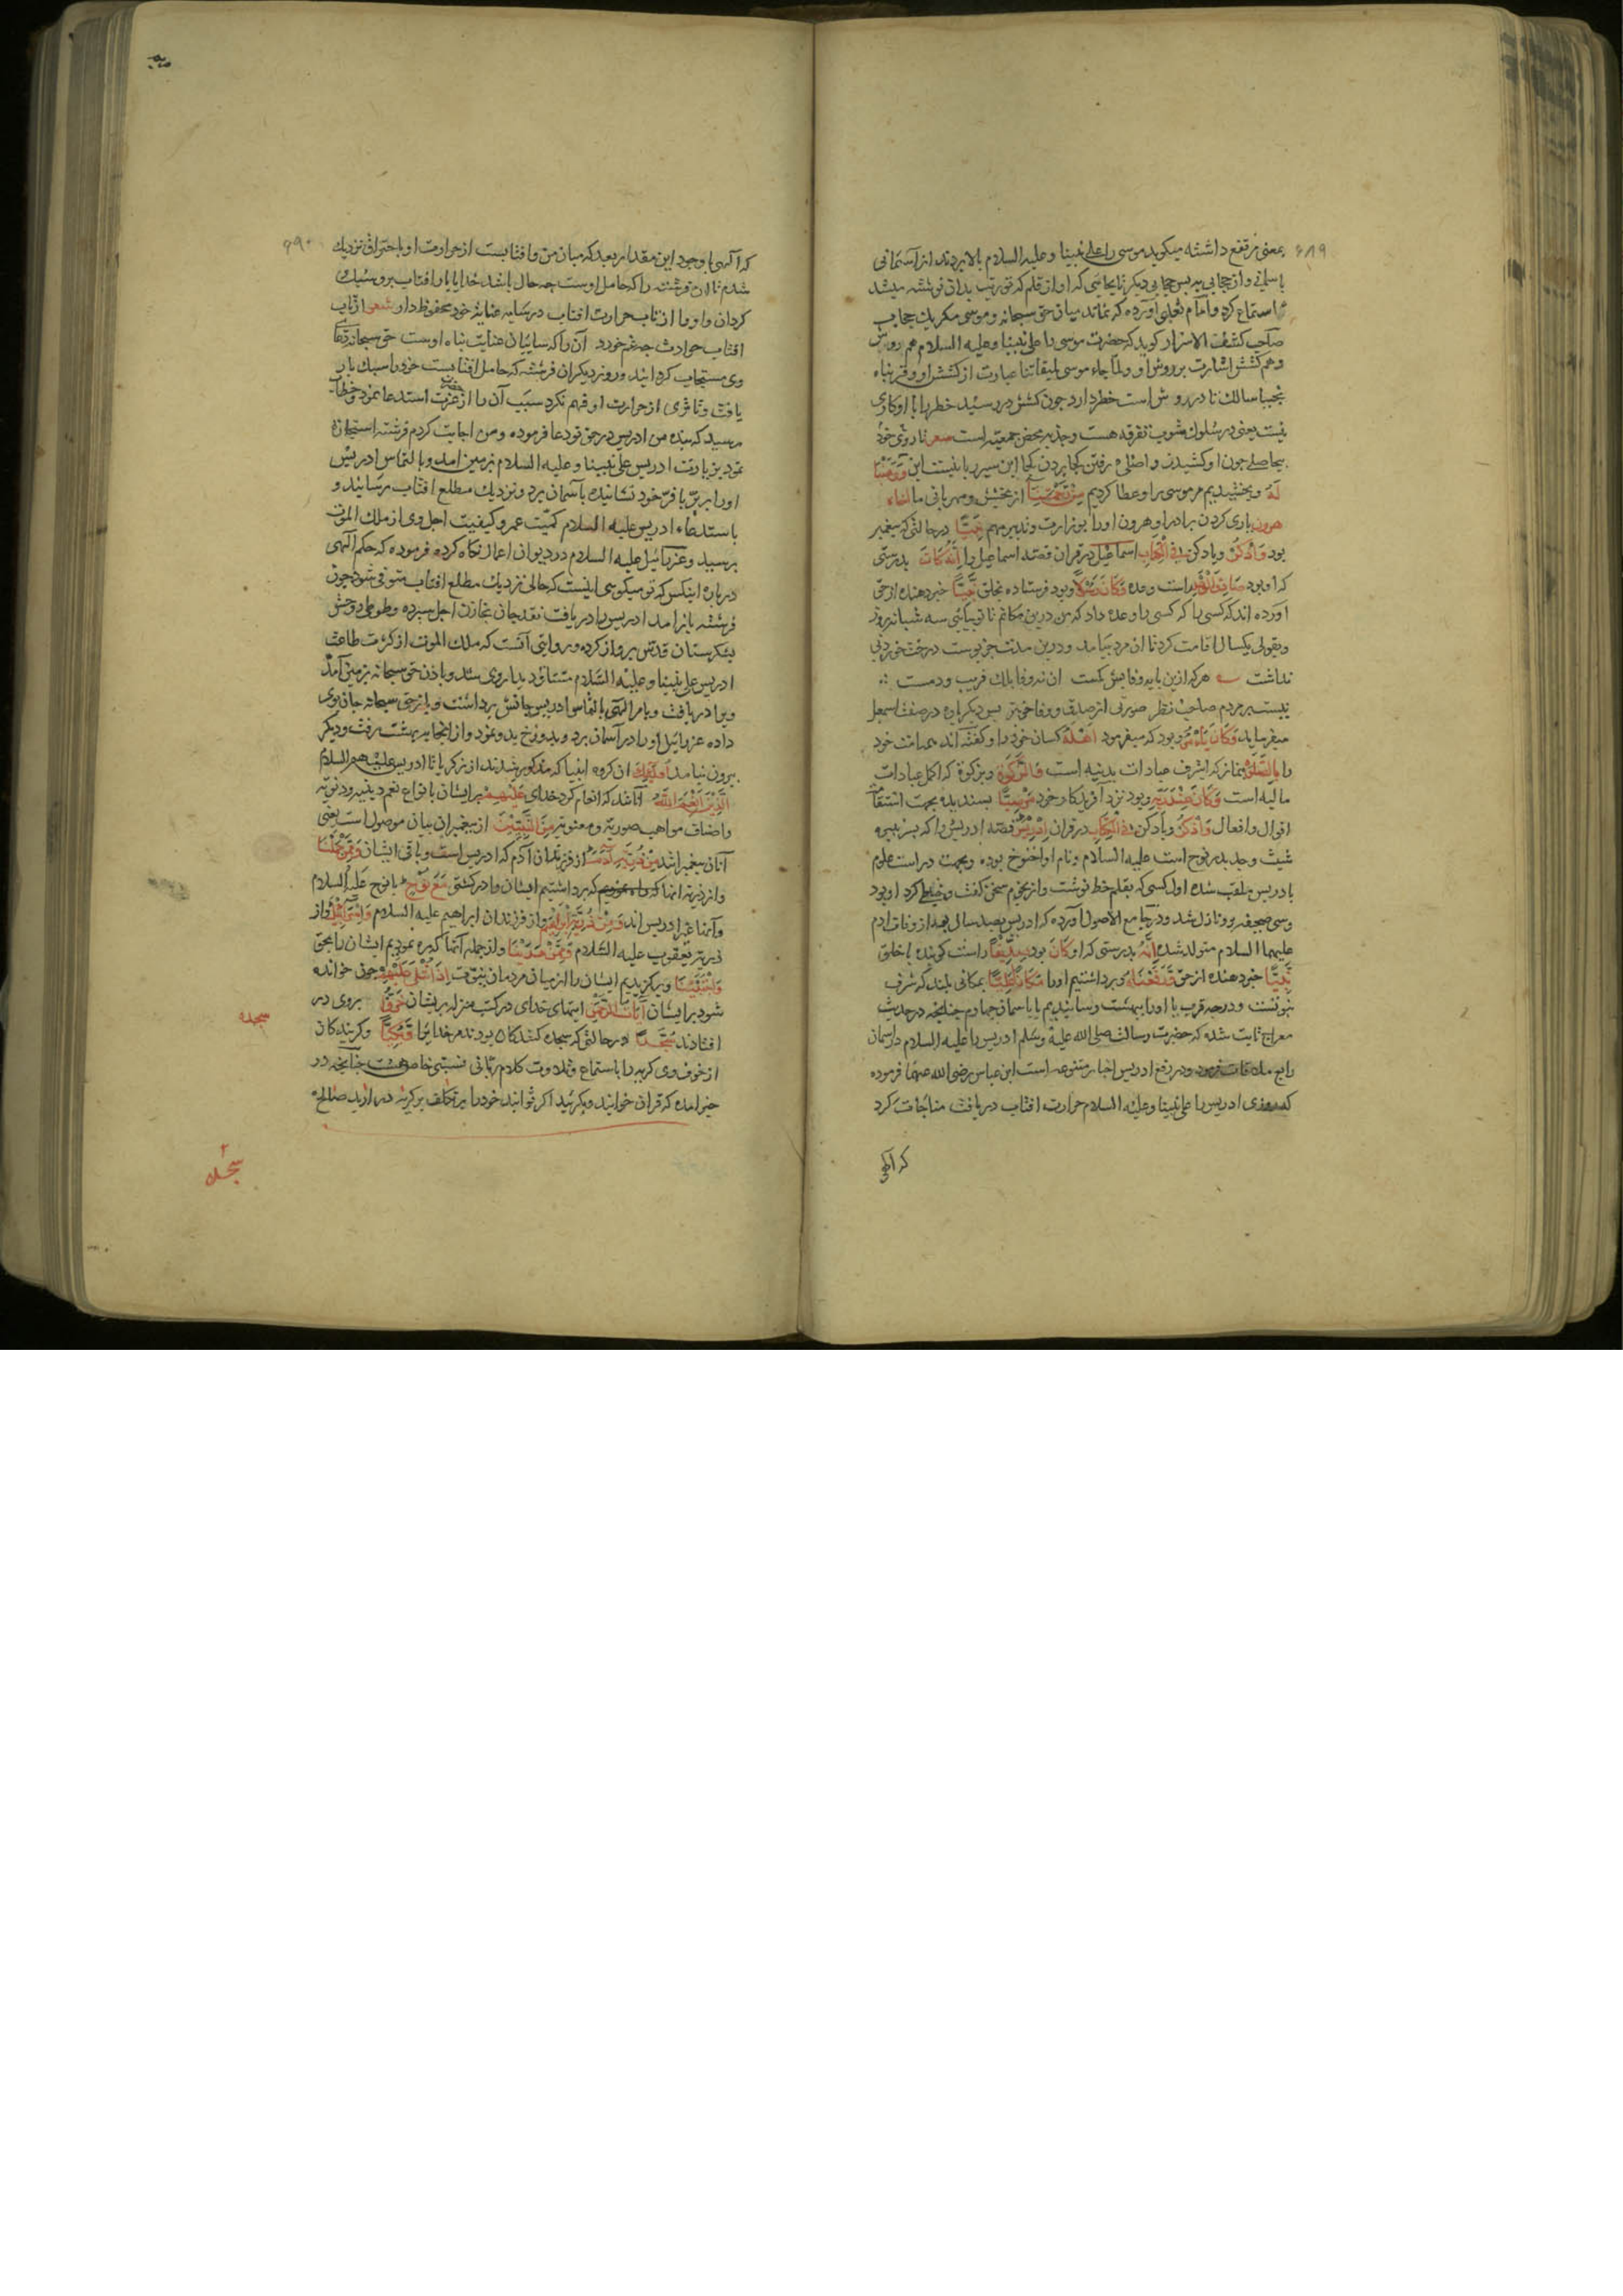 ۶۸۹
بمعنی مرتفع داشته میکوید موسی را علی نبینا و علیه السلام بالا بردند از آسمانی
باسمانی و از حجابی به پس حجابی دیکر تا بجایی که اواز قلم که توریت بدان نوشته میشد
استماع کرد و امام ثعلبی آورده که نماند میان حق سبحانه و موسی مکر یک حجاب
صاحب کشف الاسرار کوید که حضرت موسی را علی نبینا و علیه السلام هم روش
و هم کشش اشارت بروش او و لما جاء موسی لمیقاتنا عبارت از کشش او و قربناه
نجیا سالک تا در روش است خطر دارد چون کشش در رسید خطر را با او کاری
نیست یعنی در سلوک مشوب تفرقه هست و جذبه محض جمعیت است شعر تا روی خود
بیحاصلی چون او کشیدت واصلی رفتن کجا بردن کجا این سیر ربانیست این وَوَهَبْنَا
لَهُ و بخشیدیم مر موسی را و عطا کردیم مِنْ رَحْمَتِنَا از بخشش و مهربانی ما اخاه
هرون یاری کردن برادر او هرون اورا بوزارت و تدبیر مهم نَبِيًّا درحالتی که پیغمبر
بود وَاذْكُرْ ویاد کن فِي الْكِتَابِ اسماعیل در قران قصه اسماعیل را إِنَّهُ كَانَ بدرستی
که او بود صَادِقَ الْوَعْدِ راست وعده وَكَانَ رَسُولًا وبود فرستاده بخلق نَبِيًّا خبر دهنده از حق
اورده اند که کسی را وعده داد که من درین مکانم تا تو بیائی سه شبانروز
وبقولی یکسال اقامت کرد تا ان مرد بیامد ودرین مدت جز پوست درخت خوردنی
نداشت هرکه ازین بایه وفا بیش کمست ان نه وفا بلک فریب و دمست
نیست بر مردم صاحب نظر صورتی از صدق و وفا خوبتر پس دیکر باره در صفت اسمعیل
میفرماید وَكَانَ يَأْمُرُ وبود که میفرمود أَهْلَهُ کسان خود را و کفته اند همه امت خود
را بِالصَّلَوةِ بنماز که اشرف عبادات بدنیه است وَالزَّكَوةِ وبزکوة که اکمل عبادات
مالیه است وَكَانَ عِنْدَ رَبِّهِ وبود نزد آفریدکار خود مَرْضِيًّا پسندیده بجهت استقامت
اقوال وافعال وَاذْكُرْ ویاد کن فِي الْكِتَابِ در قران إِدْرِيسَ قصه ادریس را که بسر نبیره
شیث وجد پدر نوح است علیه السلام ونام او اخنوخ بوده وبجهت دراست علوم
بادریس ملقب شده اول کسی که بقلم خط نوشت و از نجوم سخن کفت وخیاطی کرد او بود
وسی صحیفه برو نازل شد ودر جامع الاصول آورده که ادریس بصد سال بعد از وفات ادم
علیهما السلام متولد شده إِنَّهُ بدرستی که او كَانَ بود صِدِّيقًا راست کوینده با خلق
نَبِيًّا خبر دهنده از حق وَرَفَعْنَاهُ وبرداشتیم اورا مَكَانًا عَلِيًّا بمکانی بلند که شرف
نبوتست ودرجه قرب یا اورا ببهشت رسانیدیم یا باسمان چهارم چنانچه در حدیث
معراج ثابت شده که حضرت رسالت صلی الله علیه وسلم ادریس را علیه السلام در آسمان
رابع ملاقات فرمود ودر رفع ادریس اخبار متنوعه است ابن عباس رضی الله عنهما فرموده
که روزی ادریس را علی نبینا وعلیه السلام حرارت افتاب دریافت مناجات کرد
که الهی
۶۹۰
که الهی با وجود این مقدار بعد که میان من وافتابست از حرارت او باحتراق نزدیک
شدم تا ان فرشته را که حامل اوست چه حال باشد خدایا بار افتاب برو سبک
کردان و او را از تاب حرارت افتاب در سایه عنایت خود محفوظ دار شعر از تاب
افتاب حوادث چه غم خورد آن را که سایبان عنایت پناه اوست حق سبحانه دعا
وی مستجاب کردانید و روز دیکر ان فرشته که حامل افتابست خود را سبک بار
یافت و تاثری از حرارت او فهم نکرد سبب آن را از حضرت عزت استدعا نمود خطاب
رسید که بنده من ادریس در حق تو دعا فرموده ومن اجابت کردم فرشته استیجازه
نمود بزیارت ادریس علی نبینا و علیه السلام بزمین امد وبالتماس ادریس
اورا بر پر با فر خود نشانیده باسمان برد ونزدیک مطلع افتاب رسانید و
باستدعاء ادریس علیه السلام کمیت عمر وکیفیت اجل وی از ملک الموت
پرسید وعزرائیل علیه السلام در دیوان اعمار نکاه کرده فرموده که حکم الهی
درباره اینکس که تو میکوئی اینست که حالی نزدیک مطلع افتاب متوفی شود چون
فرشته باز آمد ادریس را دریافت نقد جان بخازن اجل سپرده وطوطی روحش
بشکرستان قدس پرواز کرده وروایتی آنست که ملک الموت از کثرت طاعت
ادریس علی نبینا وعلیه السلام مشتاق دیدار وی شد وباذن حق سبحانه بزمین آمد
ویرا دریافت وبامر الهی بالتماس ادریس جانش برداشت وباز حق سبحانه جان بوی
داده عزرائیل اورا در آسمان برد وبدوزخ بدو نمود و از انجا به بهشت رفت ودیکر
بیرون نیامد أُولَئِكَ ان کروه انبیا که مذکور شدند از زکریا تا ادریس علیهم السلام
الَّذِينَ أَنْعَمَ اللَّهُ آنانند که انعام کرد خدای عَلَيْهِمْ بر ایشان بانواع نعم دینیه ودنیویه
واصناف مواهب صوریه ومعنویه مِنَ النَّبِيِّينَ از پیغمبران بیان موصول است یعنی
آنان پیغمبرانند مِنْ ذُرِّيَّةِ آدَمَ از فرزندان آدم که ادریس است وباقی ایشان وَمِمَّنْ حَمَلْنَا
واز ذریه انها که برداشتیم ایشان را در کشتی مَعَ نُوحٍ با نوح علیه السلام
وآنها غیر ادریس اند وَمِنْ ذُرِّيَّةِ إِبْرَاهِيمَ واز فرزندان ابراهیم علیه السلام وَإِسْرَائِيلَ واز
ذریه یعقوب علیه السلام وَمِمَّنْ هَدَيْنَا واز جمله آنها که ره نمودیم ایشان را بحق
وَاجْتَبَيْنَا وبرکزیدیم ایشان را از میان مردمان بنبوت إِذَا تُتْلَى عَلَيْهِمْ چون خوانده
شود بر ایشان آيَاتُ الرَّحْمَنِ ایتهای خدای در کتب منزله بر ایشان خَرُّوا بروی در
افتادند سُجَّدًا در حالتی که سجده کنندکان بودند مر خدایرا وَبُكِيًّا وکریندکان
سجده
از خوف وی کریه را باستماع وتلاوت کلام ربانی نسبتی خاص هست چنانچه در
خبر امده که قران خوانید وبکریید اکر نتوانید خود را بتکلف بر کریه دارید صالح
سجده